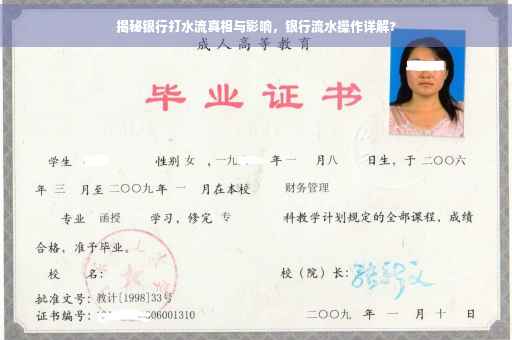 揭秘银行打水流真相与影响，银行流水操作详解?
成人高等教育
毕业证书
学生 性别 女 ，一九 年 一 月八 日生，于 二〇〇六
年 三 月至 二〇〇九 年 一 月在本校 财务管理
专业 函授 学习，修完 专 科教学计划规定的全部课程，成绩
合格，准予毕业。
校 名： 校（院）长：
批准文号：教计[1998]33号
证书编号： 06001310 二〇〇九 年 一 月 十 日